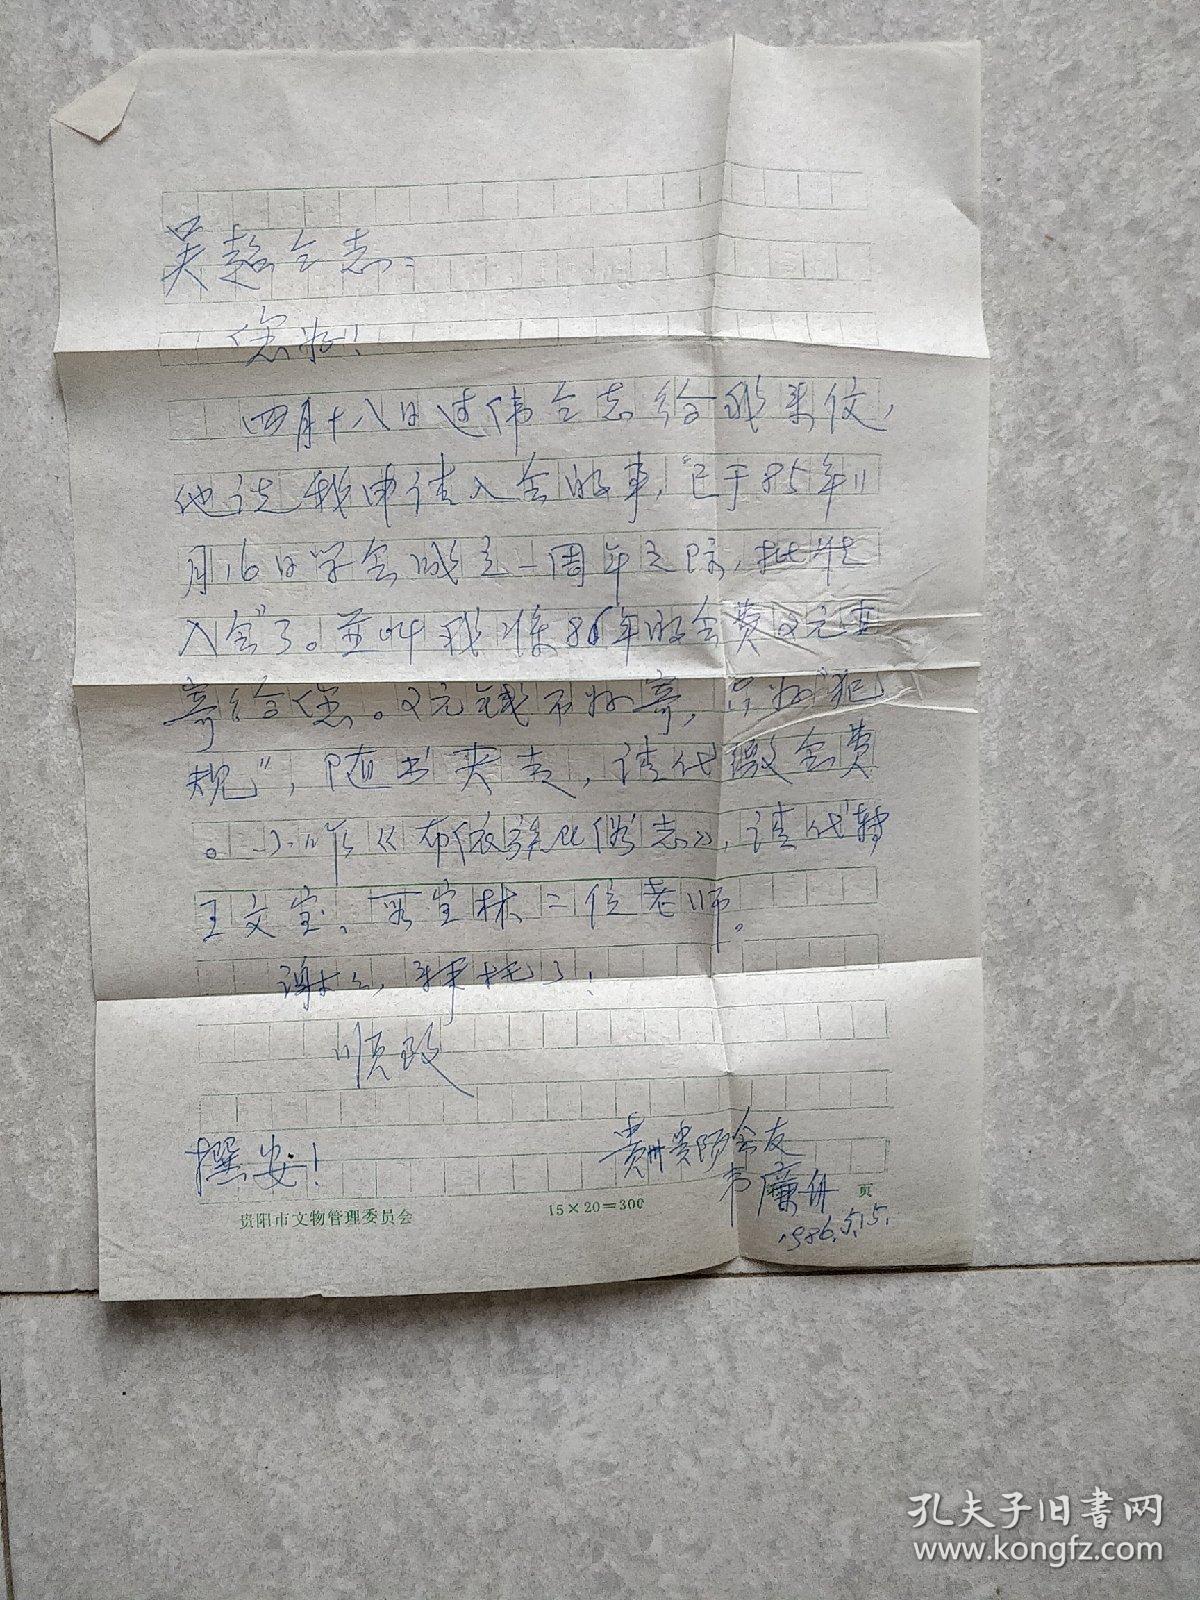 吴超仝志：
您好！
四月十八日过伟仝志给我来信，
他说我申请入会的事，“已于85年11
月16日学会成立一周年之际，批准
入会”了。并叫我将86年的会费2元直
寄给您。2元钱不好寄，只好“犯
规”，随书夹去，请代缴会费
。小作《布依族民俗志》，请代转
王文宝、宝林二位老师。
谢谢，拜托了！
顺致
撰安！
贵州贵阳会友
韦廉舟
1986.5.15.
贵阳市文物管理委员会
15×20=300
页
孔夫子旧书网
www.kongfz.com